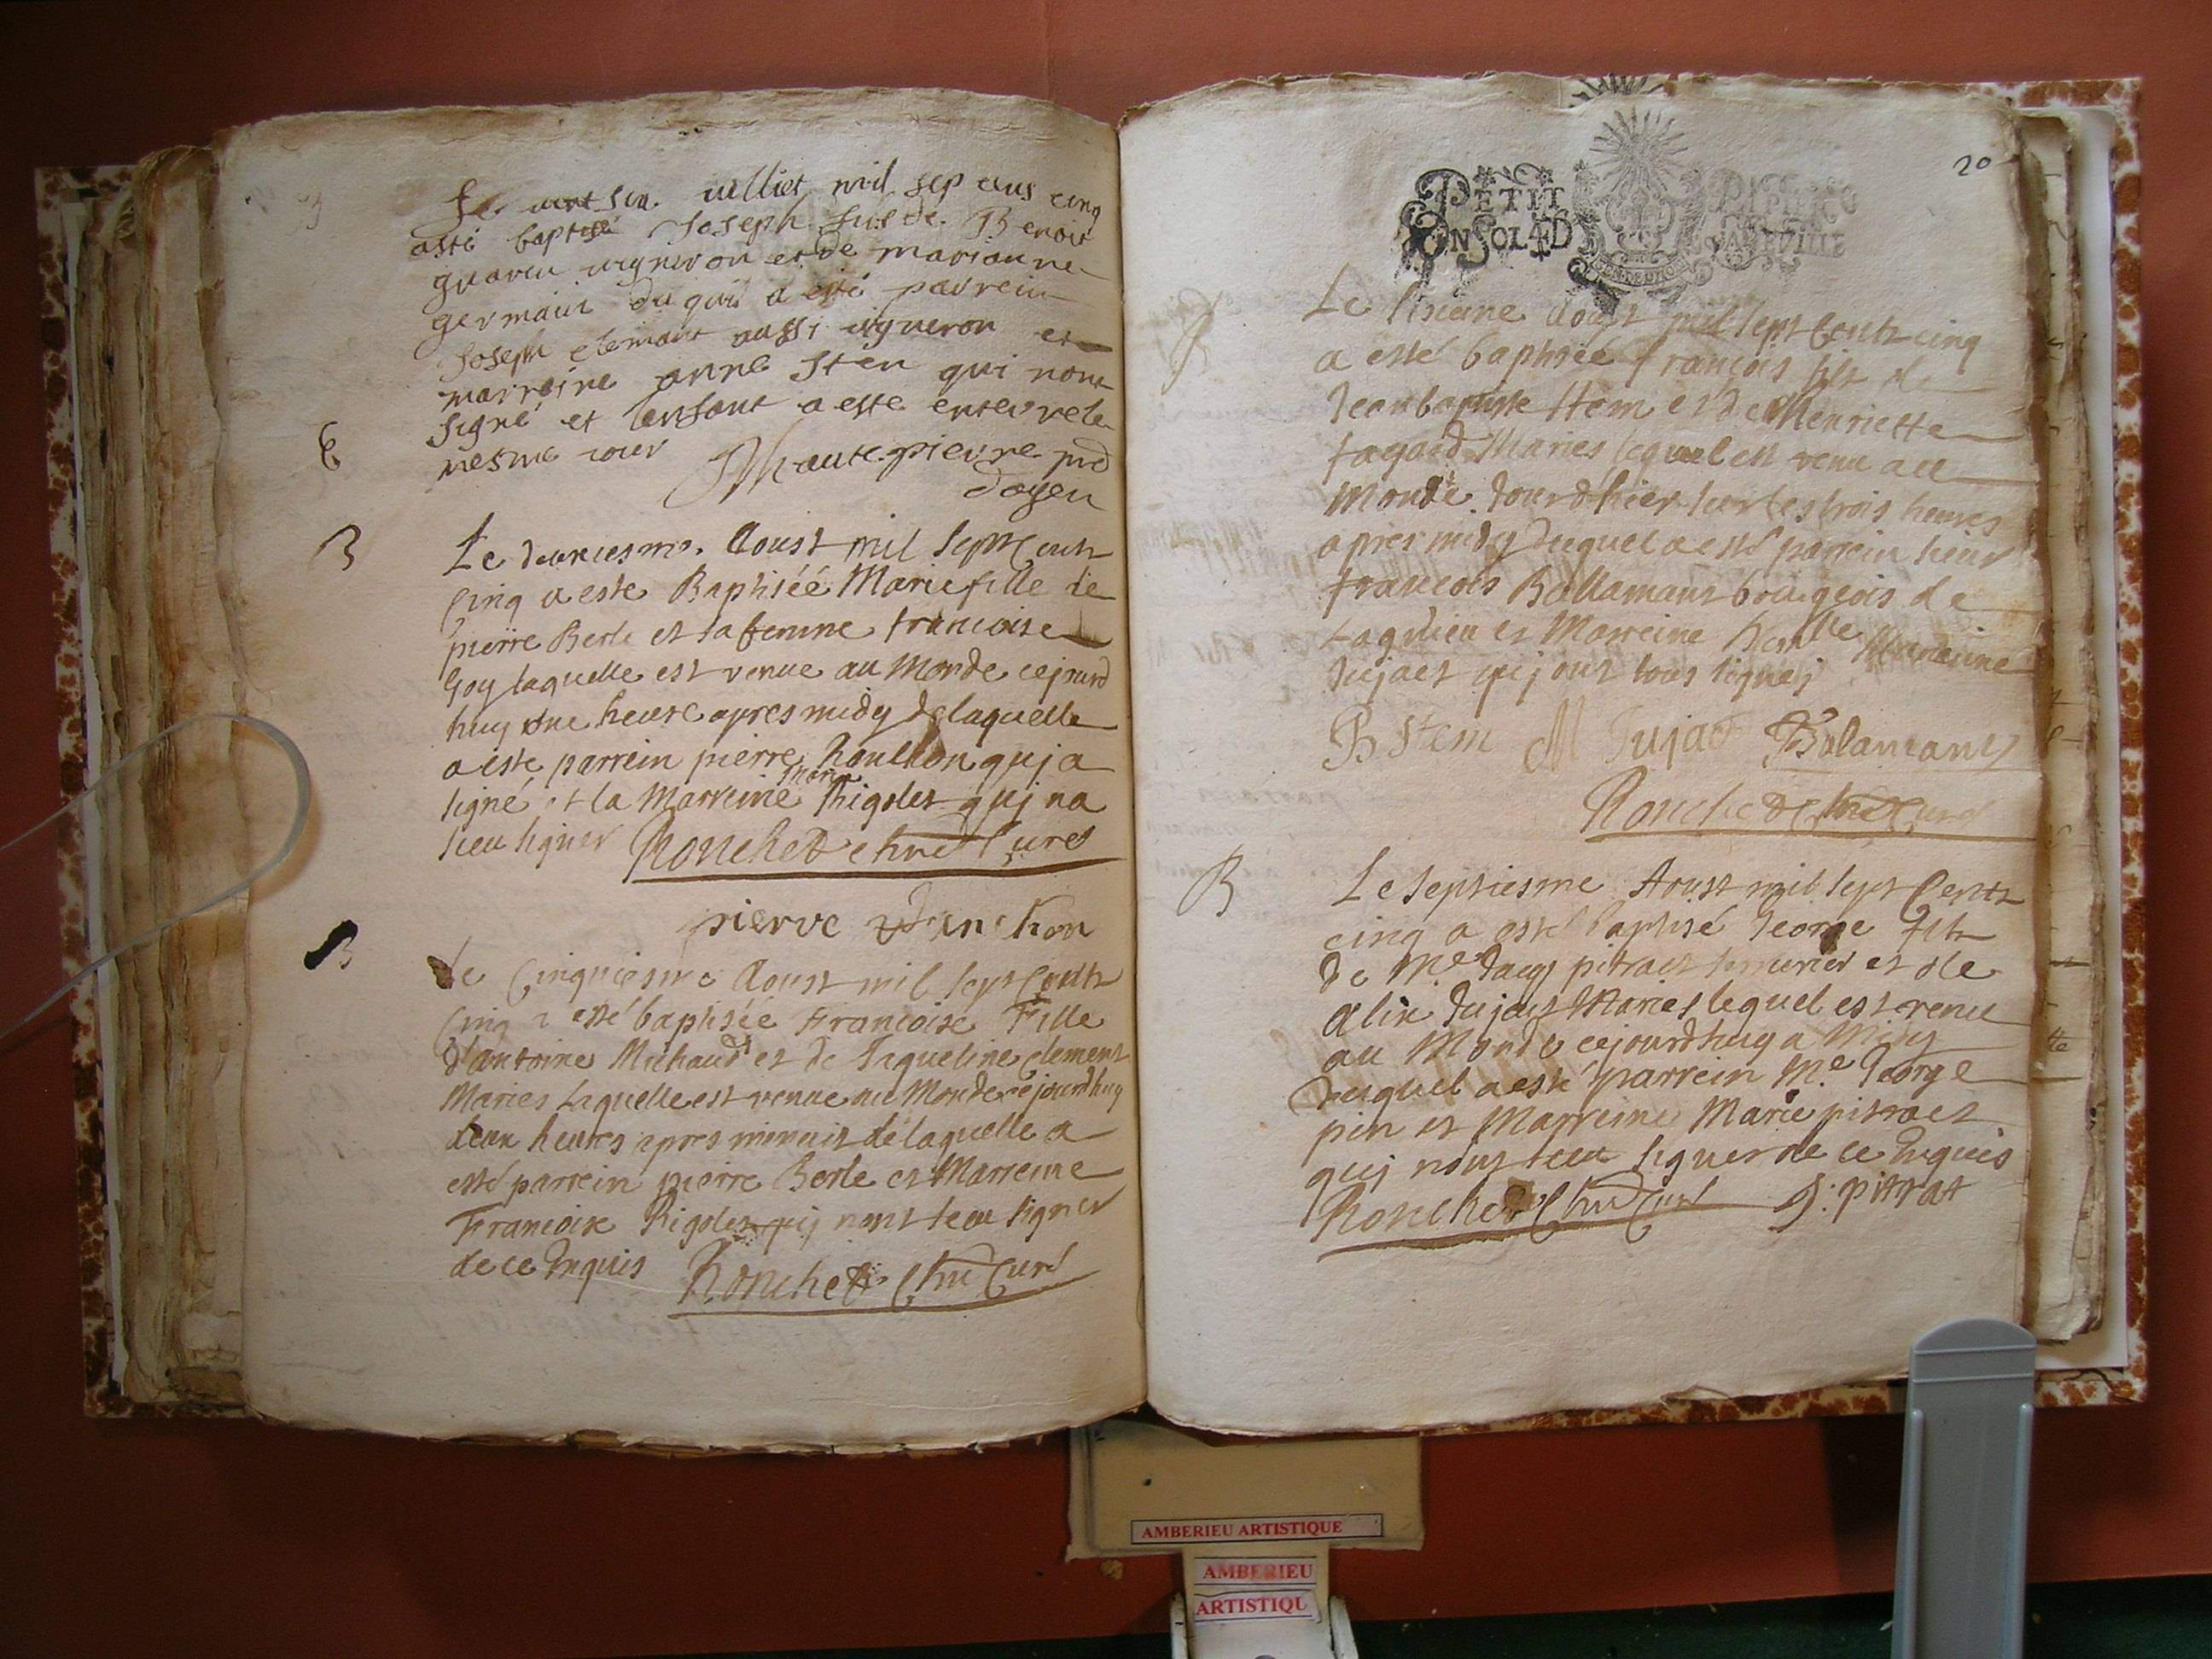 B
Le vint six iulliet mil sep cens cinq
a esté baptisé Joseph fils de Benoit
vigneron et de marianne
germain du quel a esté parrein
Joseph clemant aussi vigneron et
marreine anne sten qui nont
signé et lenfant a esté enterre le
E
mesme iour hautepierre
doyen
B
Le deuxiesme Aoust mil Sept Cents
Cinq a este Baptiséé Marie fille de
pierre Berle et sa femme francoise
Goy laquelle est venue au Monde cejourd
huy une heure apres midy de laquelle
a este parrein pierre qui a
signé et la Marreine Marie Rigolet qui na
sceu signer Ronchet Curé
pierre
B
Le Cinquiesme Aoust mil Sept Cents
Cinq a esté baptisée Francoise Fille
d'antoine Michaud et de Jaqueline clement
Maries Laquelle est venue au Monde cejourdhuy
deux heures apres minuit de laquelle a
esté parrein pierre Berle et Marreine
Francoise Rigolet qui nont sceu signer
de ce Enquis Ronchet Curé
20
PETIT PAPIER
EN SOL 4 D LA FEUILLE
B
Le sixieme Aoust mil sept Cents cinq
a esté baptiséé francois fils de
Jean baptiste Stem et de Henriette
Maries lequel est venu au
Monde Jour dhier sur les trois heures
apres midy duquel a esté parrein sieur
francois Ballamant bourgeois de
Lagnieu et Marreine
Dujact qui ont tous signes
B Stem M Dujact Balamant
Ronchet Curé
B
Le Septiesme Aoust mil sept Cents
cinq a esté baptisé George fils
de Me Jacq pitract serrurier et de
alix Dujact Maries lequel est venu
au Monde cejourdhuy a Midy
duquel a esté parrein Me George
pin et Marreine Marie pitract
qui nont sceu signer de ce Enquis
Ronchet Curé J: pitrat
AMBERIEU ARTISTIQUE
AMBERIEU
ARTISTIQU